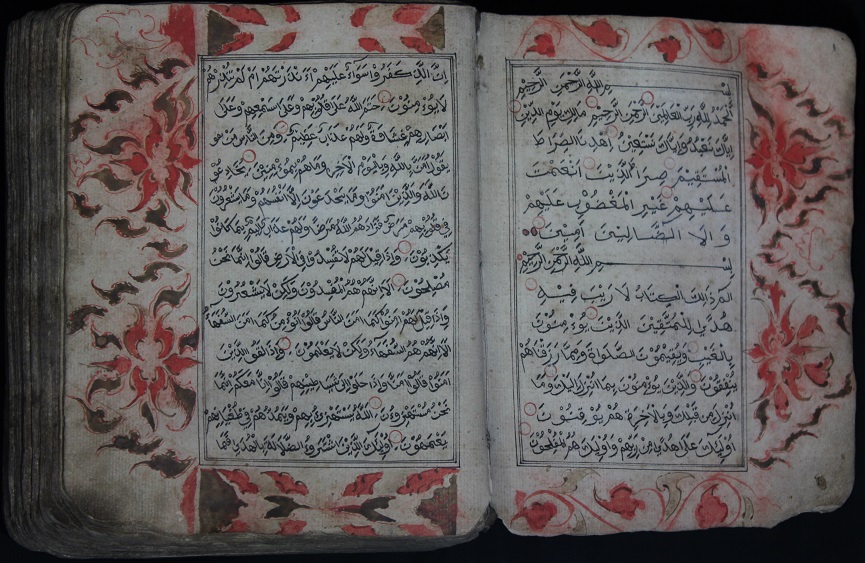 بسم الله الرحمن الرحيم
الحمد لله رب العالمين الرحمن الرحيم مالك يوم الدين
اياك نعبد واياك نستعين اهدنا الصراط
المستقيم صراط الذين انعمت
عليهم غير المغضوب عليهم
ولا الضالين امين
بسم الله الرحمن الرحيم
الم ذلك الكتاب لا ريب فيه
هدى للمتقين الذين يؤمنون
بالغيب ويقيمون الصلواة ومما رزقناهم
ينفقون والذين يؤمنون بما انزل اليك وما
انزل من قبلك وبالاخرة هم يوقنون
اولئك على هدى من ربهم واولئك هم المفلحون
ان الذين كفروا سواء عليهم ءانذرتهم ام لم تنذرهم
لا يؤمنون ختم الله على قلوبهم وعلى سمعهم وعلى
ابصارهم غشاوة ولهم عذاب عظيم ومن الناس من
يقول امنا بالله وباليوم الاخر وما هم بمؤمنين يخادعو
ن الله والذين امنوا وما يخدعون الا انفسهم وما يشعرون
في قلوبهم مرض فزادهم الله مرضا ولهم عذاب اليم بما كانوا
يكذبون واذا قيل لهم لا تفسدوا في الارض قالوا انما نحن
مصلحون الا انهم هم المفسدون ولكن لا يشعرون
واذا قيل لهم امنوا كما امن الناس قالوا انؤمن كما امن السفهاء
الا انهم هم السفهاء ولكن لا يعلمون واذا لقوا الذين
امنوا قالوا امنا واذا خلوا الى شياطينهم قالوا انا معكم انما
نحن مستهزءون الله يستهزئ بهم ويمدهم في طغيانهم
يعمهون اولئك الذين اشتروا الضلالة بالهدى فما